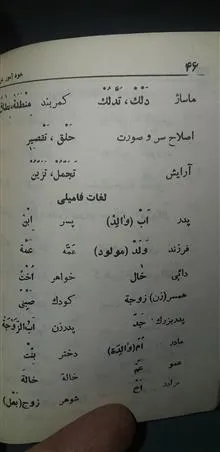 ۴۶ خود آموز
ماساژ دَلْكْ، تَدَلُّكْ کمربند مِنْطَقَة،
اصلاح سر و صورت حَلْق، تَقْصیٖر
آرایش تَجَمُّل، تَزَیُّنْ
لغات فامیلی
پدر اَبْ (وٰالِدْ) پسر اِبْنْ
فرزند وَلَدْ (مولود) عَمّه عَمَّة
دائی خٰال خواهر اُخْتْ
همسر (زن) زوجة کودك صَبْیْ
پدربزرك جَدّ پدرزن اَبُ الزَّوْجَة
مادر اُمّ (وٰالِدَة) دختر بِنْتْ
عمو عَمّ خاله خٰالَة
برادر اَخْ شوهر زوج (بَعْل)